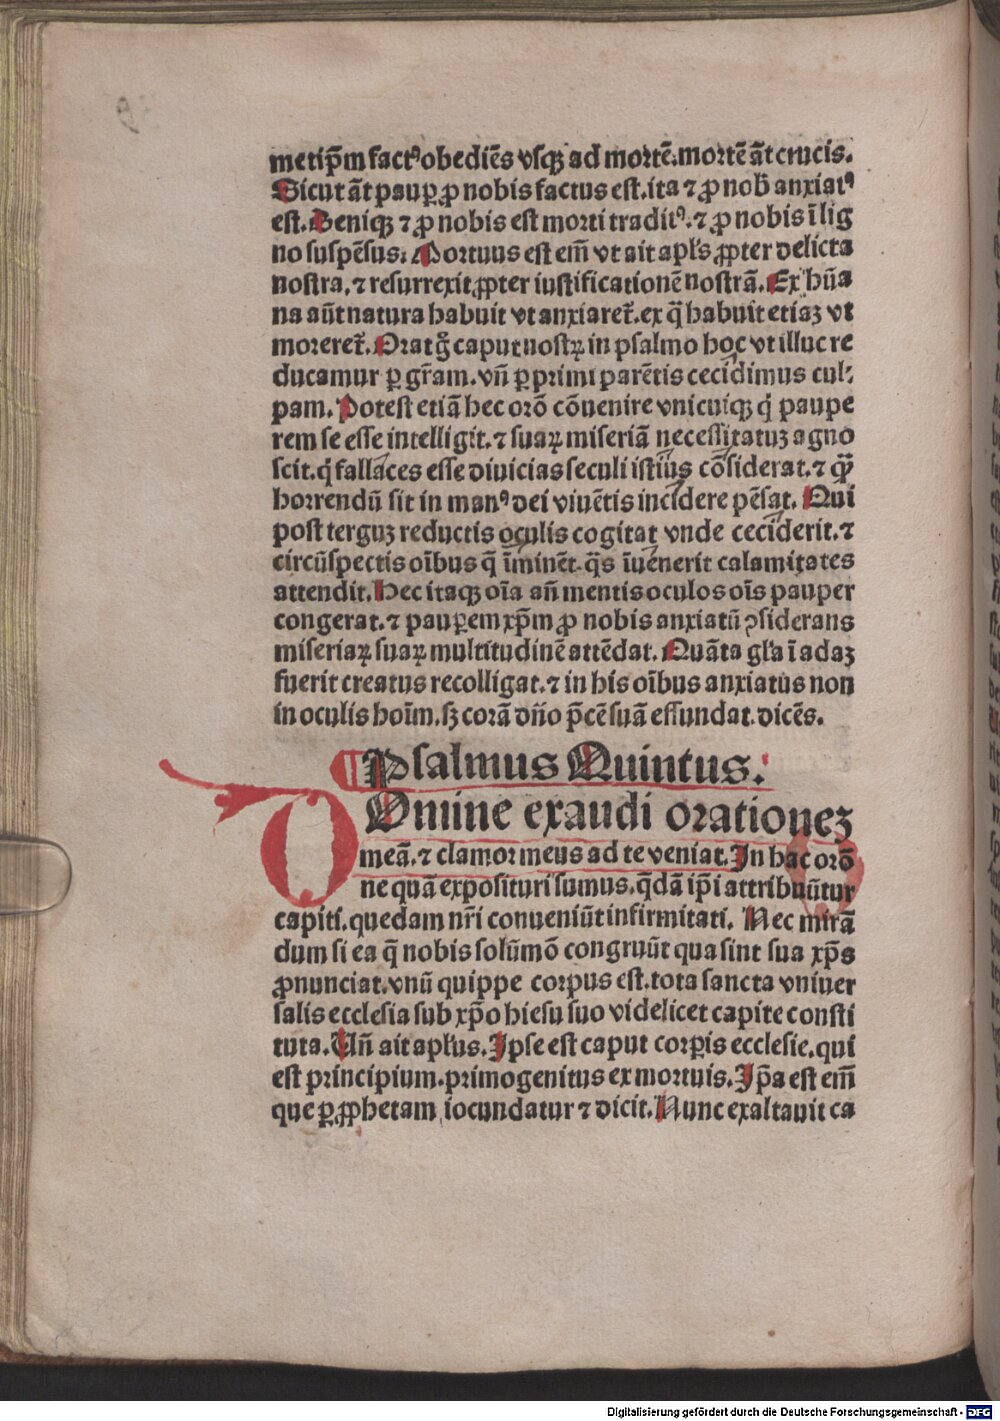 metip̄m factꝰ obediēs vſqꝫ ad mortē. mortē āt crucis.
Sicut āt paup̲ ꝓ nobis factus eſt. ita ⁊ ꝓ nob̄ anxiatꝰ
eſt. Deniqꝫ ⁊ ꝓ nobis eſt morti traditꝰ. ⁊ ꝓ nobis ī lig
no ſuſpēſus. Mortuus eſt em̄ vt ait apl's ꝓpter delicta
noſtra, ⁊ reſurrexit ꝓpter iuſtificationē noſtrā. Ex hūa
na aūt natura habuit vt anxiaret̄. ex q̄ habuit etiaꝫ vt
moreret̄. Orat g̊ caput noſtꝝ in pſalmo hoc vt illuc re
ducamur ꝑ gr̄am. vn̄ ꝑ primi parētis cecidimus cul⸗
pam. Poteſt etiā hec orō cōuenire vnicuiqꝫ q̇ paupe
rem ſe eſſe intelligit. ⁊ ſuaꝝ miſeriā neceſſitatuꝫ agno
ſcit. q̇ fallaces eſſe diuicias ſeculi iſtius cōſiderat. ⁊ qꝫ̄
horrendū ſit in manꝰ dei viuētis incidere pēſat. Qui
poſt terguꝫ reductis oculis cogitat vnde ceciderit. ⁊
circūſpectis oībus q̄ īminēt. q̄s īuenerit calamitates
attendit. Hec itaqꝫ oīa an̄ mentis oculos oīs pauper
congerat. ⁊ pauꝑem xp̄m ꝓ nobis anxiatū ꝯſiderans
miſeriaꝝ ſuaꝝ multitudinē attēdat. Quāta gl'a ī adaꝫ
fuerit creatus recolligat. ⁊ in his oībus anxiatus non
in oculis hoīm. ſꝫ corā dn̄o p̄cē ſuā effundat. dicēs.
¶ Pſalmus Quintus.
DOmine exaudi orationeꝫ
meā. ⁊ clamor meus ad te veniat. In hac orō
ne quā expoſituri ſumus. q̄dā ip̄i attribuūtur
capiti. quedam nr̄i conueniūt infirmitati. Nec mirā
dum ſi ea q̄ nobis ſolūmō congruūt qua ſint ſua xp̄s
ꝓnunciat. vnū quippe corpus eſt. tota ſancta vniuer
ſalis eccleſia ſub xp̄o hieſu ſuo videlicet capite conſti
tuta. Un̄ ait apl'us. Ipſe eſt caput corꝑis eccleſie. qui
eſt principium. primogenitus ex mortuis. Ip̄a eſt em̄
que ꝑ ꝓphetam iocundatur ⁊ dicit. Nunc exaltauit ca
Digitalisierung gefördert durch die Deutsche Forschungsgemeinschaft - DFG